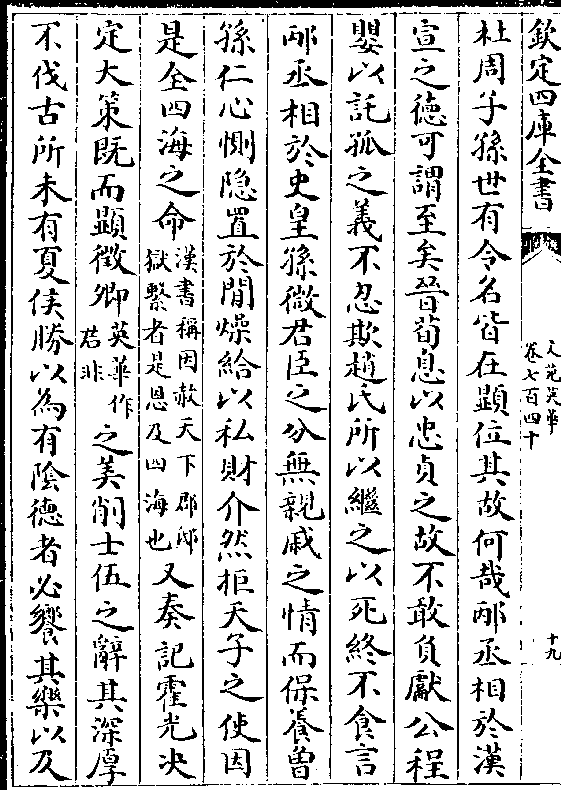 欽定四庫全書
文苑英華
卷七百四十
十九
杜周子孫世有令名皆在顯位其故何哉邴丞相於漢
宣之徳可謂至矣晉荀息以忠貞之故不敢負獻公程
嬰以託孤之義不忍欺趙氏所以繼之以死終不食言
邴丞相於史皇孫微君臣之分無親戚之情而保養曽
孫仁心惻隐置於閒燥給以私財介然拒天子之使因
是全四海之命漢書稱因赦天下郡邸獄繫者是恩及四海也又奏記霍光决
定大策既而顯徴卿英華作君非之美削士伍之辭其深厚
不伐古所未有夏侯勝以為有陰德者必饗其樂以及